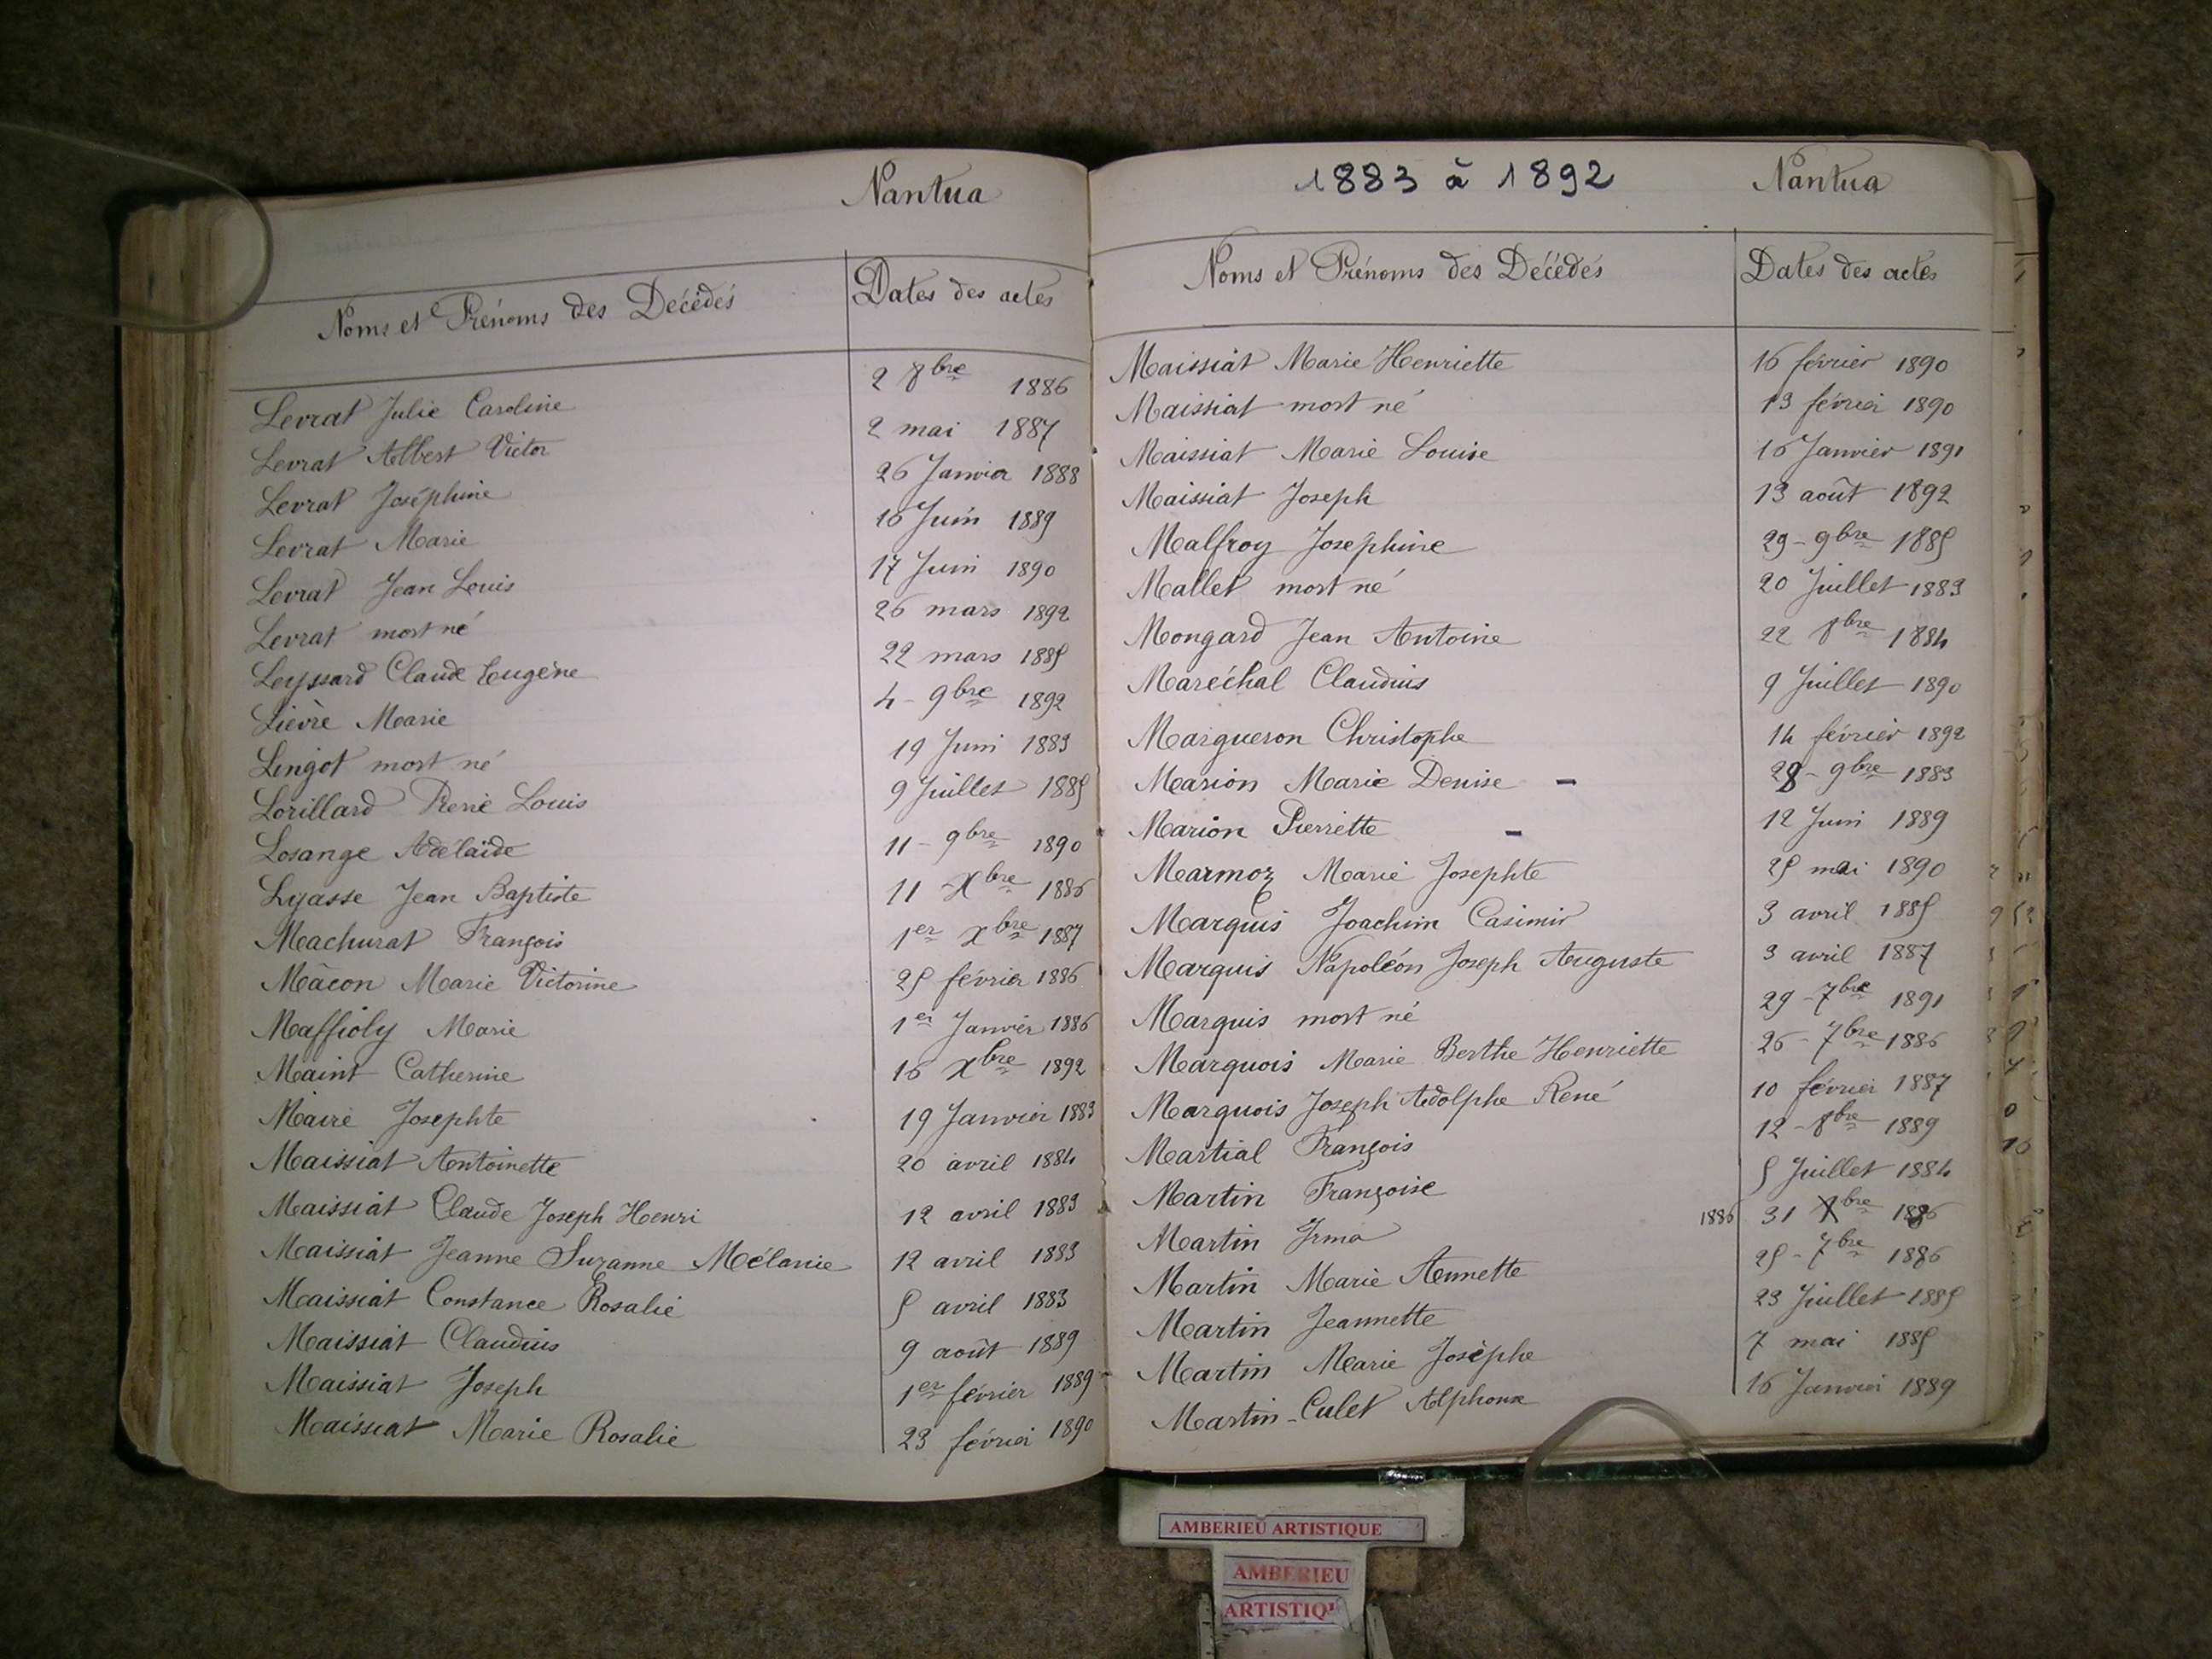 Nantua
Noms et Prénoms des Décédés Dates des actes
Levrat Julie Caroline 2 8bre 1886
Levrat Albert Victor 2 mai 1887
Levrat Joséphine 26 Janvier 1888
Levrat Marie 16 Juin 1889
Levrat Jean Louis 17 Juin 1890
Levrat mort né 26 mars 1892
Leyssard Claude Eugène 22 mars 1885
Lièvre Marie 4 - 9bre 1892
Lingot mort né 19 Juin 1883
Lorillard René Louis 9 Juillet 1885
Losange Adélaïde 11 - 9bre 1890
Lyasse Jean Baptiste 11 - Xbre 1886
Machurat François 1er Xbre 1887
Mâcon Marie Victorine 25 février 1886
Maffioly Marie 1er Janvier 1886
Maint Catherine 16 Xbre 1892
Maire Josephte 19 Janvier 1883
Maissiat Antoinette 20 avril 1884
Maissiat Claude Joseph Henri 12 avril 1883
Maissiat Jeanne Suzanne Mélanie 12 avril 1883
Maissiat Constance Rosalie 5 avril 1883
Maissiat Claudius 9 août 1889
Maissiat Joseph 1er février 1889
Maissiat Marie Rosalie 23 février 1890
1883 à 1892 Nantua
Noms et Prénoms des Décédés Dates des actes
Maissiat Marie Henriette 16 février 1890
Maissiat mort né 13 février 1890
Maissiat Marie Louise 16 Janvier 1891
Maissiat Joseph 13 août 1892
Malfroy Josephine 29 - 9bre 1885
Mallet mort né 20 Juillet 1883
Mongard Jean Antoine 22 8bre 1884
Maréchal Claudius 9 Juillet 1890
Margueron Christophe 14 février 1892
Marion Marie Denise - 28 - 9bre 1883
Marion Pierrette - 12 Juin 1889
Marmoz Marie Josephte 25 mai 1890
Marquis Joachim Casimir 3 avril 1885
Marquis Napoléon Joseph Auguste 3 avril 1887
Marquis mort né 29 - 7bre 1891
Marquois Marie Berthe Henriette 26 - 7bre 1886
Marquois Joseph Adolphe René 10 février 1887
Martial François 12 - 8bre 1889
Martin Françoise 5 Juillet 1884
Martin Irma 1886 31 Xbre 1886
Martin Marie Annette 25 - 7bre 1886
Martin Jeannette 23 Juillet 1885
Martin Marie Josèphe 7 mai 1885
Martin-Culet Alphonse 16 Janvier 1889
AMBERIEU ARTISTIQUE
AMBERIEU
ARTISTIQU